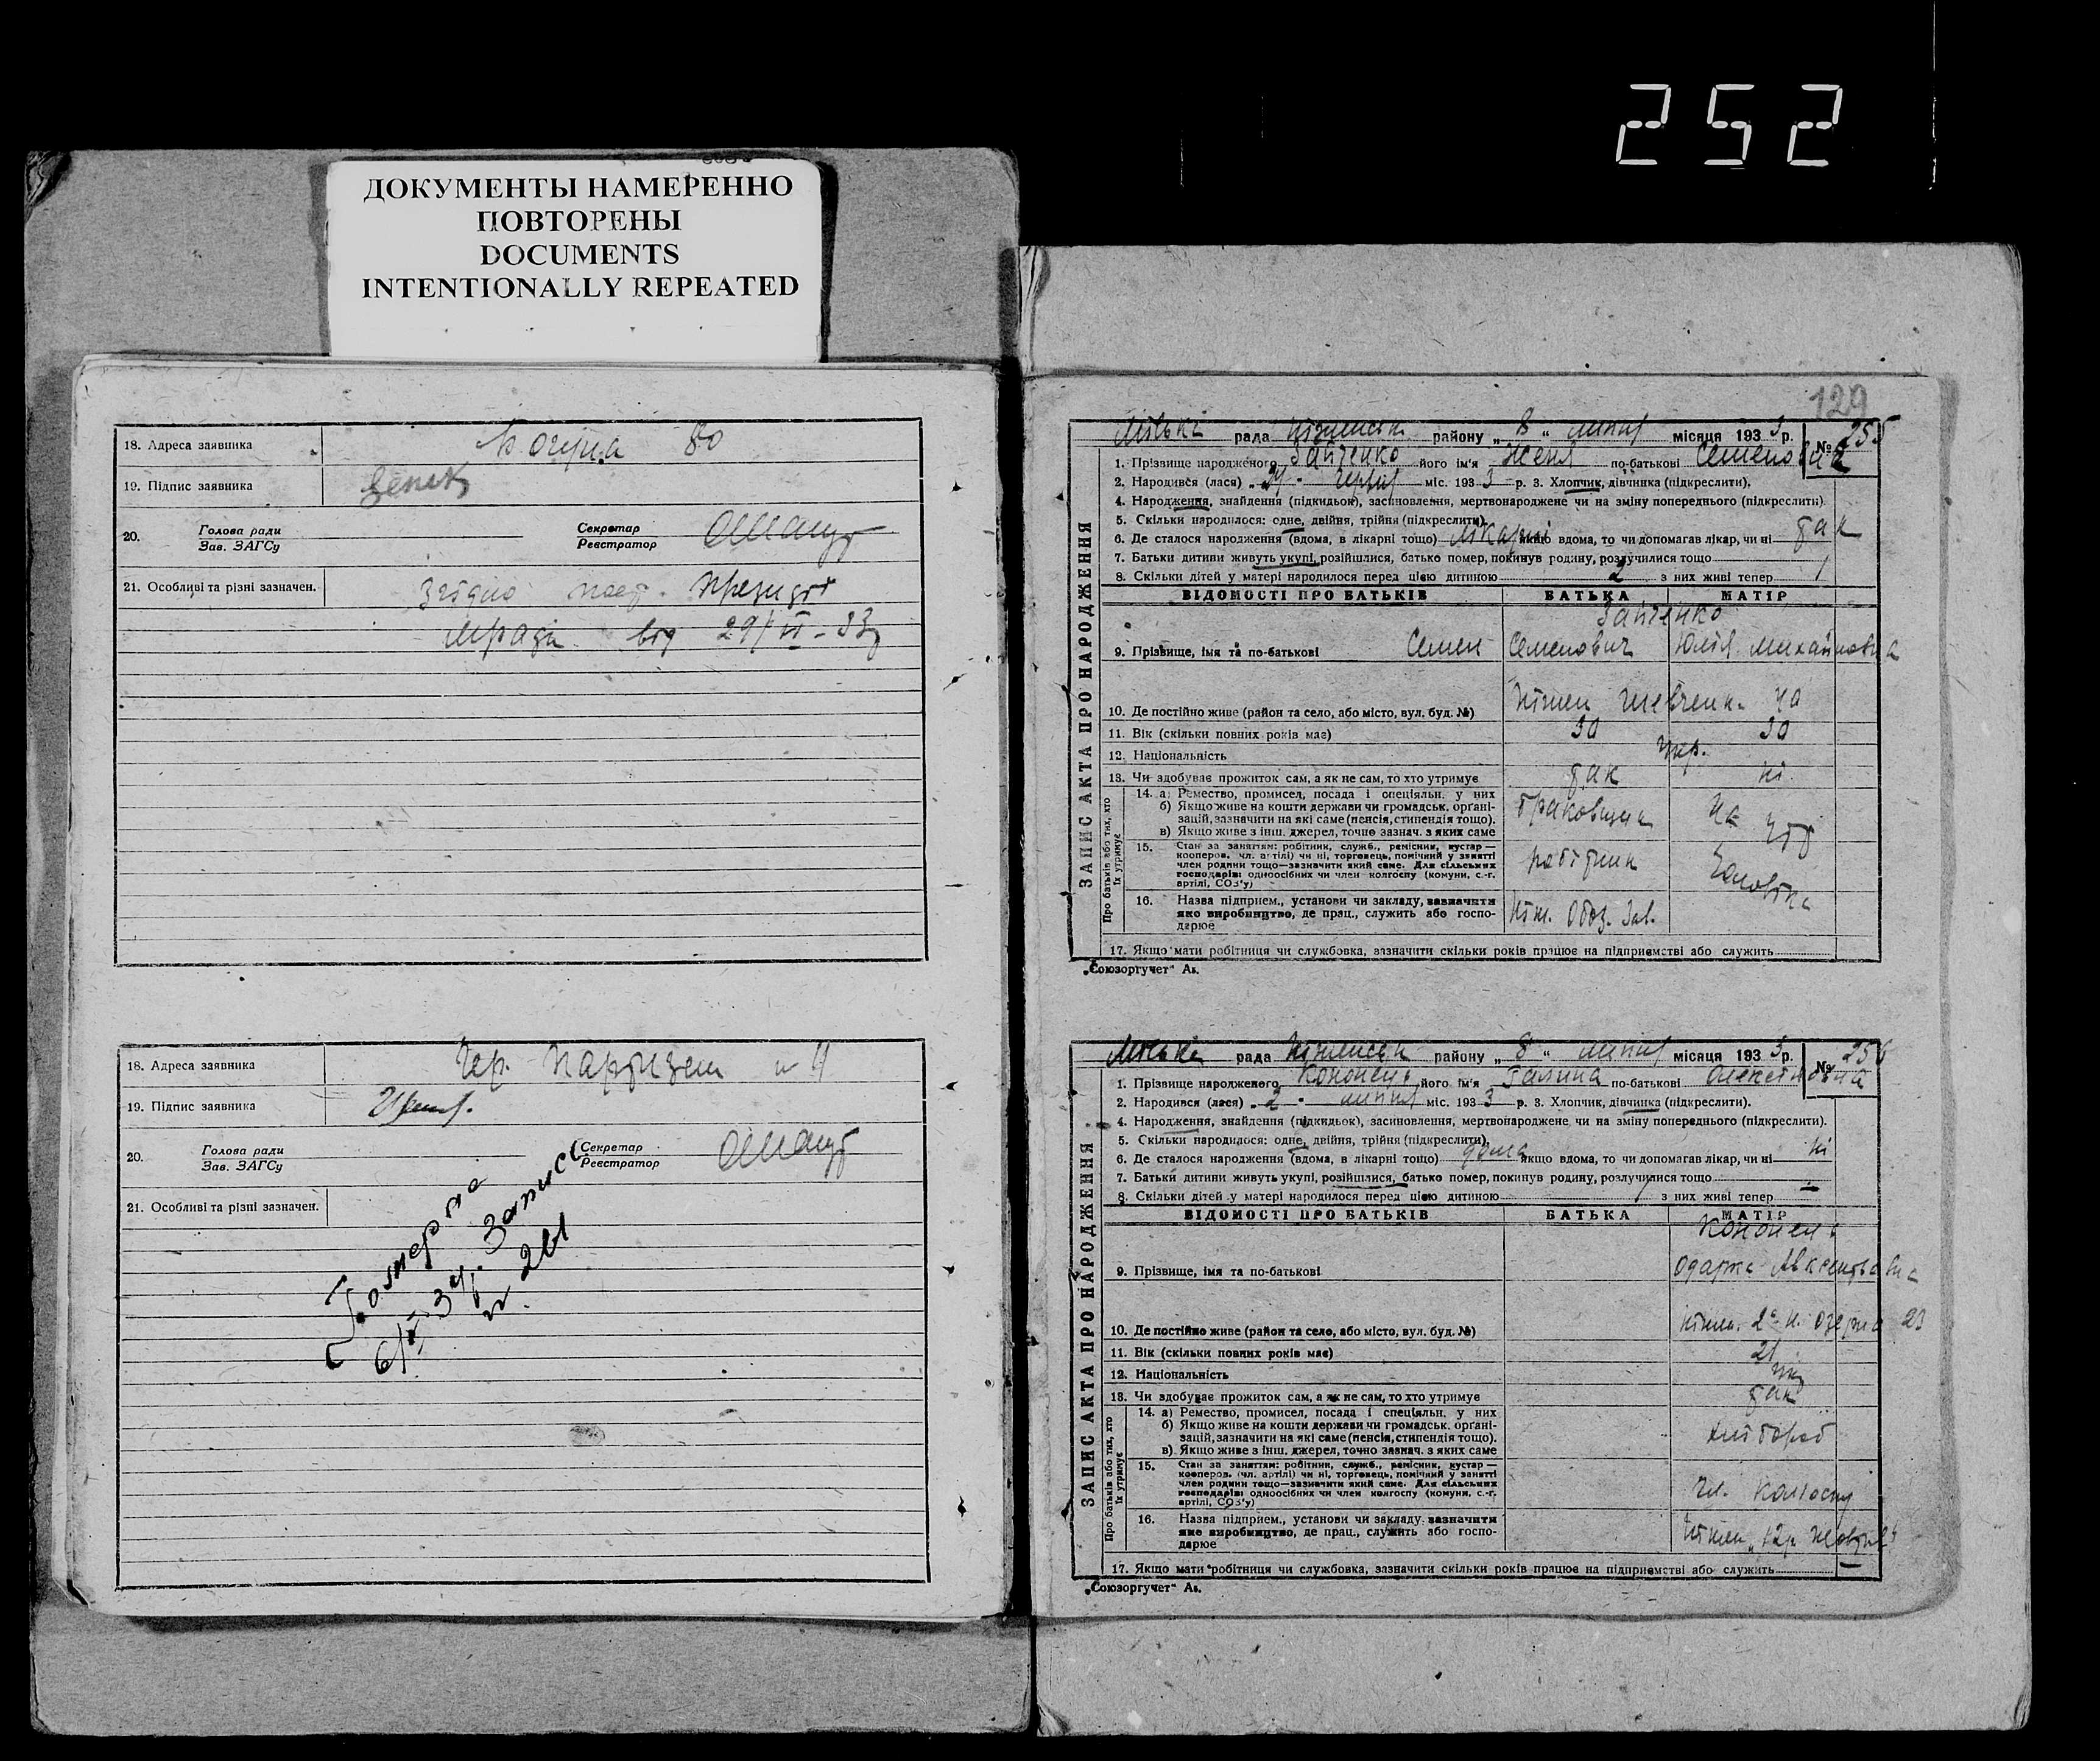 252
ДОКУМЕНТЫ НАМЕРЕННО
ПОВТОРЕНЫ
DOCUMENTS
INTENTIONALLY REPEATED
18. Адреса заявника 80
19. Підпис заявника
20. Голова ради
Зав. ЗАГСу
Секретар
Реєстратор
21. Особливі та різні зазначен. Згідно пост. Президії
міради від 29/VI-33р
18. Адреса заявника Чер. Партизан № 4
19. Підпис заявника
20. Голова ради
Зав. ЗАГСу
Секретар
Реєстратор
21. Особливі та різні зазначен.
Записи
129
ЗАПИС АКТА ПРО НАРОДЖЕННЯ
Міська рада Ніжинськ району „ 8 “ липня місяця 193 3 р. № 255
1. Прізвище народженого Зайченко його ім'я Женя по-батькові Семенович
2. Народився (лася) „ червня міс. 193 3 р. 3. Хлопчик, дівчинка (підкреслити).
4. Народження, знайдення (підкидьок), засиновлення, мертвонароджене чи на зміну попереднього (підкреслити)
5. Скільки народилося: одне, двійня, трійня (підкреслити).
6. Де сталося народження (вдома, в лікарні тощо) лікарні якщо вдома, то чи допомагав лікар, чи ні так
7. Батьки дитини живуть укупі, розійшлися, батько помер, покинув родину, розлучилися тощо
8. Скільки дітей у матері народилося перед цією дитиною 2 з них живі тепер 1
ВІДОМОСТІ ПРО БАТЬКІВ БАТЬКА МАТІР
Зайченко
9. Прізвище, імя та по-батькові Семен Семенович Юлія Михайловна
10. Де постійно живе (район та село, або місто, вул. буд. №) Ніжен Шевченк. 40
11. Вік (скільки повних років має) 30 30
12. Національність Укр.
13. Чи здобуває прожиток сам, а як не сам, то хто утримує так ні
Про батьків або тих, хто їх утримує
14. а) Ремество, промисел, посада і спеціяльн. у них
б) Якщо живе на кошти держави чи громадськ. орґані-
зацій, зазначити на які саме (пенсія, стипендія тощо).
в) Якщо живе з інш. джерел, точно зазнач. з яких саме
браковщик на утр
15. Стан за заняттям: робітник, служб., ремісник, кустар —
кооперов. чл. артілі) чи ні, торговець, помічний у занятті
член родини тощо—зазначити який саме. Для сільських
господарів: одноосібних чи член колгоспу (комуни, с.-г.
артілі, СОЗ'у)
робітник Чоловіка
16. Назва підприєм., установи чи закладу, зазначити
яке виробництво, де прац., служить або госпо-
дарює
Ніж. Обоз. Зав.
17. Якщо мати робітниця чи службовка, зазначити скільки років працює на підприємстві або служить
„Союзоргучет“ Ак.
ЗАПИС АКТА ПРО НАРОДЖЕННЯ
Міська рада Ніжинськ району „ 8 “ липня місяця 193 3 р. № 256
1. Прізвище народженого Кононець його ім'я Галина по-батькові Олексіївна
2. Народився (лася) „ 2 “ липня міс. 193 3 р. 3. Хлопчик, дівчинка (підкреслити).
4. Народження, знайдення (підкидьок), засиновлення, мертвонароджене чи на зміну попереднього (підкреслити).
5. Скільки народилося: одне, двійня, трійня (підкреслити).
6. Де сталося народження (вдома, в лікарні тощо) дома якщо вдома, то чи допомагав лікар, чи ні ні
7. Батьки дитини живуть укупі, розійшлися, батько помер, покинув родину, розлучилися тощо
8. Скільки дітей у матері народилося перед цією дитиною з них живі тепер —
ВІДОМОСТІ ПРО БАТЬКІВ БАТЬКА МАТІР
Кононець
9. Прізвище, імя та по-батькові Одарка Авксентьевна
10. Де постійно живе (район та село, або місто, вул. буд. №) Ніжен. Озерна 23
11. Вік (скільки повних років має) 21
12. Національність Укр
13. Чи здобуває прожиток сам, а як не сам, то хто утримує так
Про батьків або тих, хто їх утримує
14. а) Ремество, промисел, посада і спеціяльн. у них
б) Якщо живе на кошти держави чи громадськ. орґані-
зацій, зазначити на які саме (пенсія, стипендія тощо).
в) Якщо живе з інш. джерел, точно зазнач. з яких саме
хлібороб
15. Стан за заняттям: робітник, служб., ремісник, кустар —
кооперов. (чл. артілі) чи ні, торговець, помічний у занятті
член родини тощо—зазначити який саме. Для сільських
господарів: одноосібних чи член колгоспу (комуни, с.-г.
артілі, СОЗ'у)
чл. колгоспу
16. Назва підприєм., установи чи закладу, зазначити
яке виробництво, де прац., служить або госпо-
дарює
Ніжен „12р. Жовтня“
17. Якщо мати робітниця чи службовка, зазначити скільки років працює на підприємстві або служить —
„Союзоргучет“ Ак.